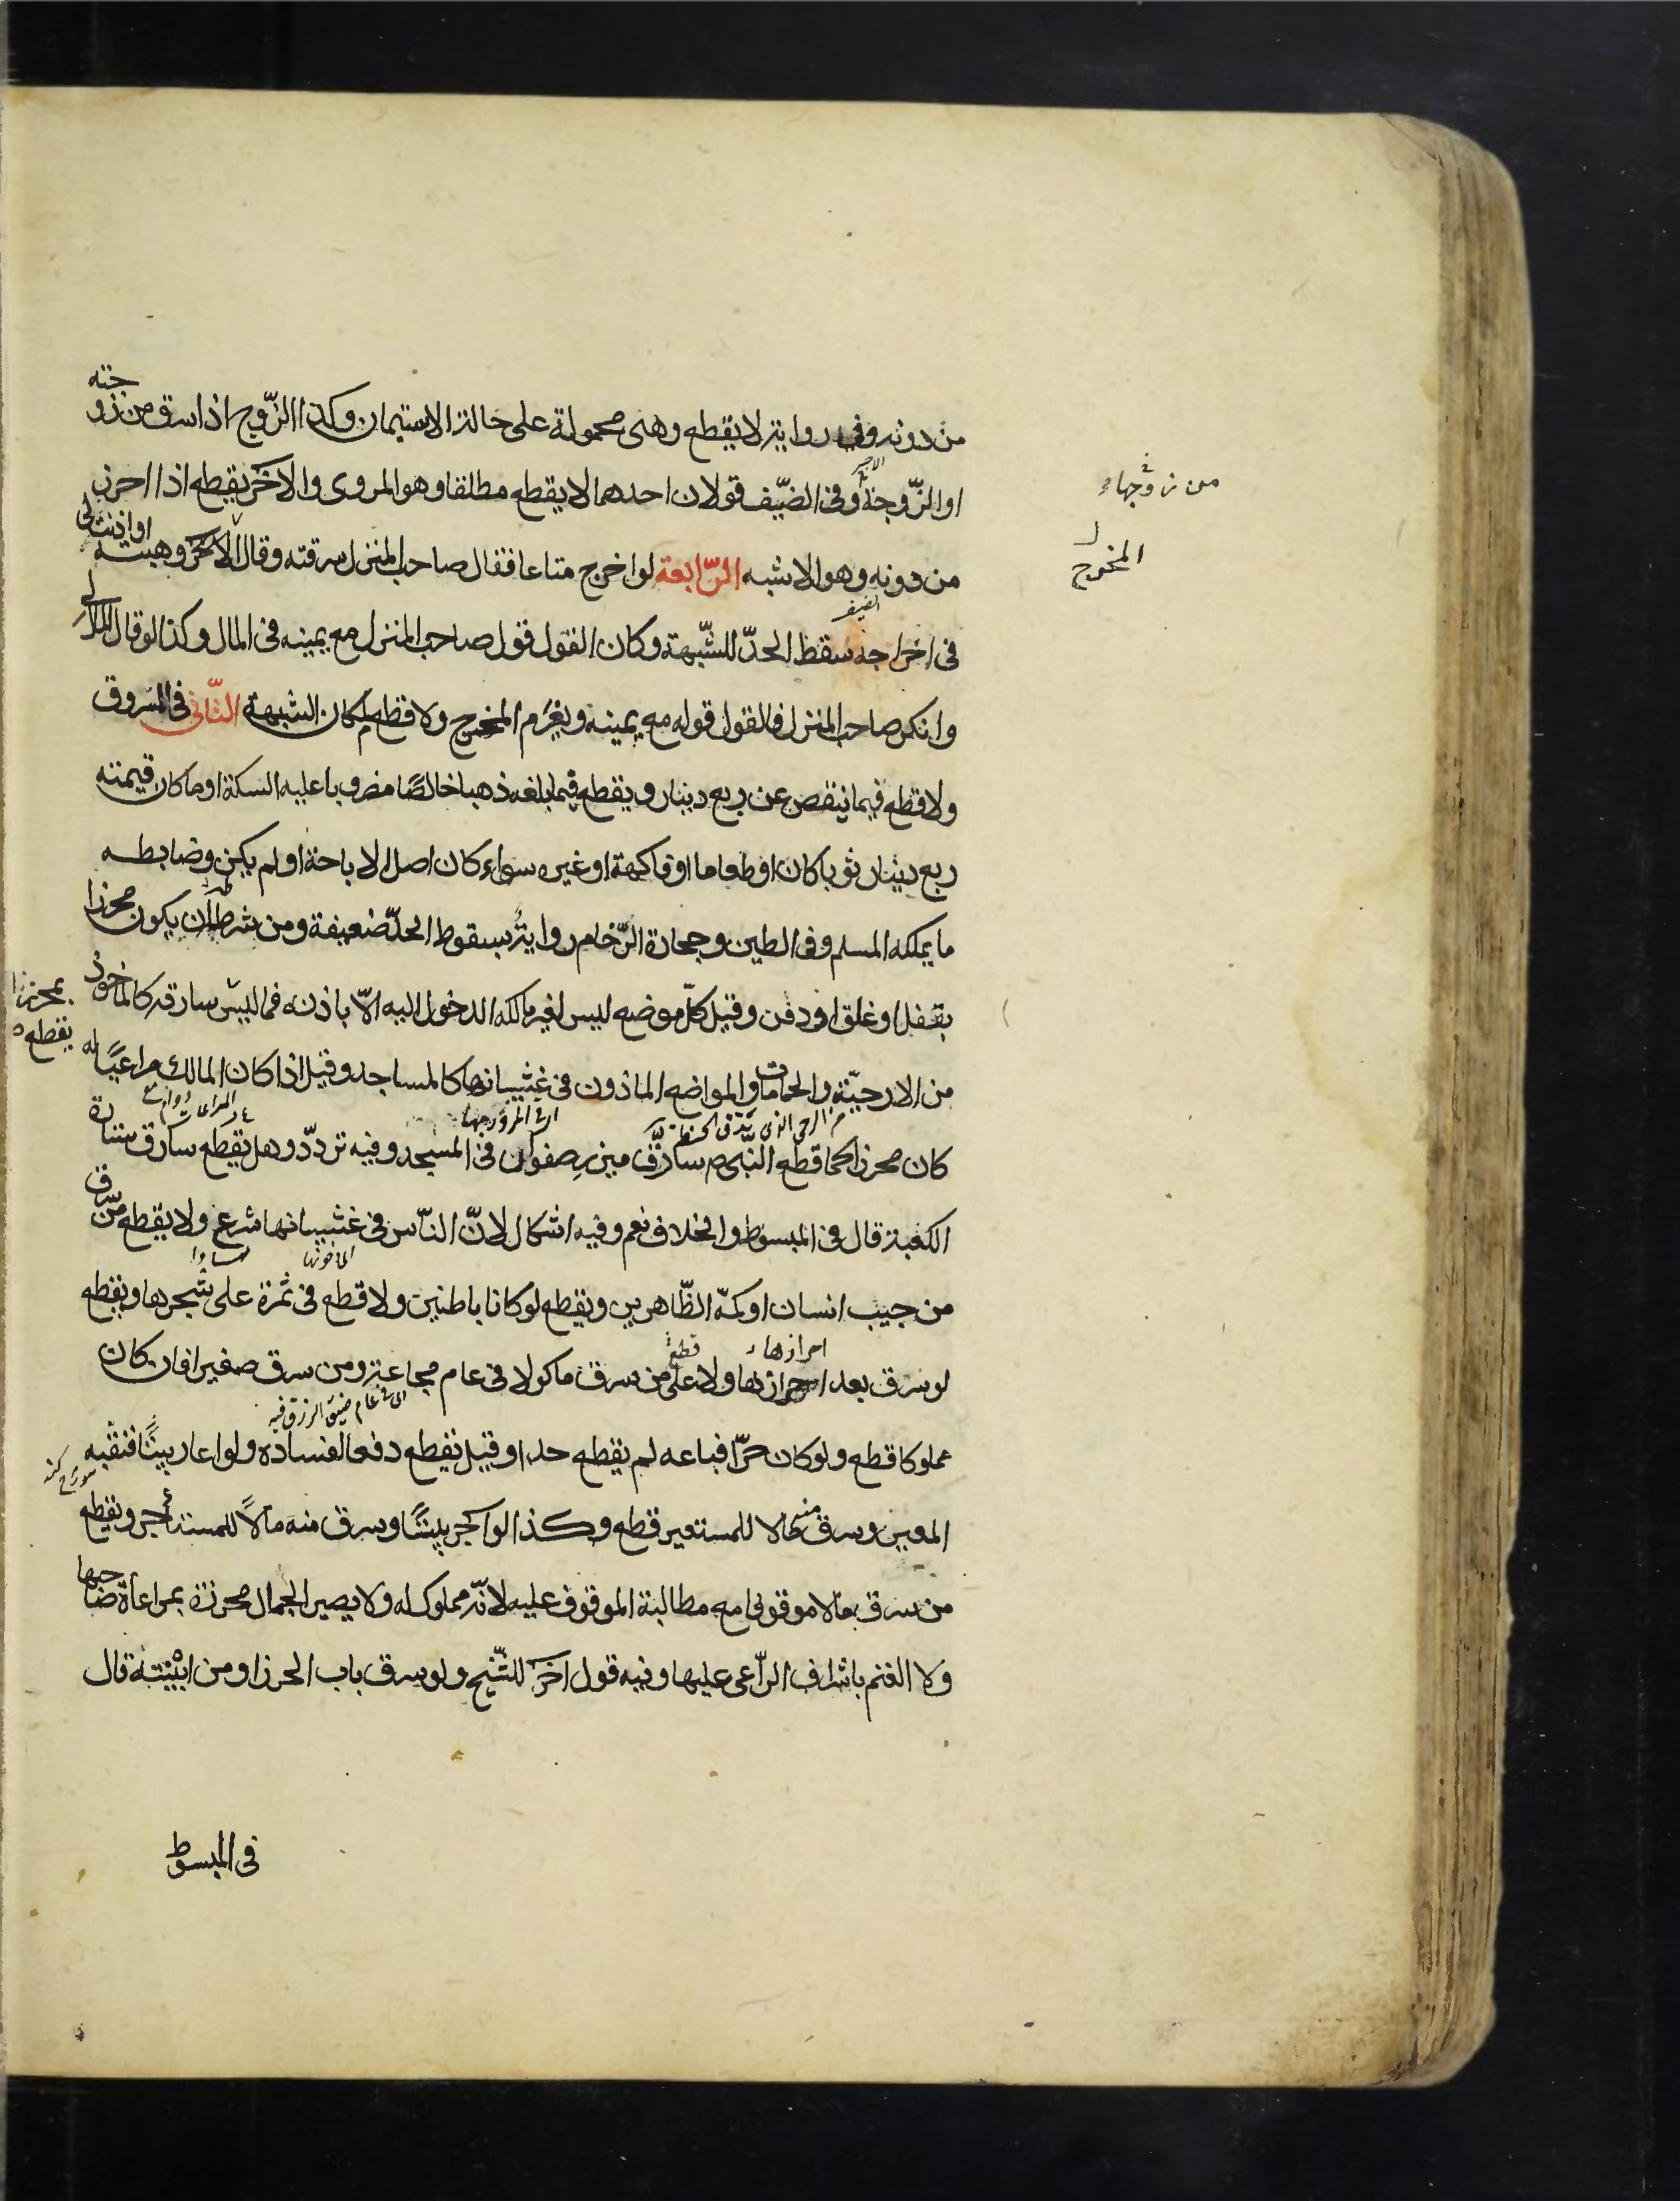 من دونه وفی روایة لا یقطع وهی محمولة علی حالة الاستیمان وکذا الزّوج اذا سرق من زوجته
من زوجها
او الزّوجة وفی الضیّف قولان احدهما لا یقطع مطلقا وهو المروی والاخر یقطع اذا احرز
المخرج
من دونه وهو الاشبه الرّابعة لو اخرج متاعا فقال صاحب المنزل سرقته وقال الاخر وهبته او اذنت لی
فی اخراجه سقط الحدّ للشّبهة وکان القول قول صاحب المنزل مع یمینه فی المال وکذا لو قال المال لی
وانکر صاحب المنزل فالقول قوله مع یمینه ویغرم المخرج ولا قطع لمکان الشبهة الثّانی فی المسروق
ولا قطع فیما ینقص عن ربع دینار ویقطع فیما بلغه ذهبا خالصًا مضروبا علیه السکة او ما کان قیمته
ربع دینار ثوبا کان او طعاما او فاکهة او غیره سواء کان اصل الاباحة او لم یکن وضابطه
ما یملکه المسلم وفی الطین وحجارة الرّخام روایة بسقوط الحدّ ضعیفة ومن شرطه ان یکون محرزا
بقفل او غلق او دفن وقیل کلّ موضع لیس لغیر مالکه الدخول الیه الّا باذنه فما لیس سارقه کالماخوذ
بمحرز لا یقطع
من الارحیّة والحمامات والمواضع الماذون فی غشیانها کالمساجد وقیل اذا کان المالک مراعیًا له
کان محرزا کما قطع النّبی ص سارق میزر صفوان فی المسجد وفیه تردّد وهل یقطع سارق ستارة
الکعبة قال فی المبسوط والخلاف نعم وفیه اشکال لانّ النّاس فی غشیانها شرع ولا یقطع من سرق
من جیب انسان او کمّه الظّاهرین ویقطع لو کانا باطنین ولا قطع فی ثمرة علی شجرها ویقطع
احرازها
قطع
لو سرق بعد احرازها ولا علی من سرق ماکولا فی عام مجاعة ومن سرق صغیرا فان کان
ای فی عام ضیق الرزق فیه
مملوکا قطع ولو کان حرّا فباعه لم یقطع حدا وقیل یقطع دفعا لفساده ولو اعار بیتًا فنقبه
المعیر وسرق منه مالا للمستعیر قطع وکذا لو اجر بیتًا وسرق منه مالًا للمستاجر ویقطع
من سرق مالا موقوفا مع مطالبة الموقوف علیه لانّه مملوک له ولا یصیر الجمال محرزة بمراعاة صاحبها
ولا الغنم باشراف الرّاعی علیها وفیه قول اخر للشّیخ ولو سرق باب الحرز او من ابنیته قال
فی المبسوط